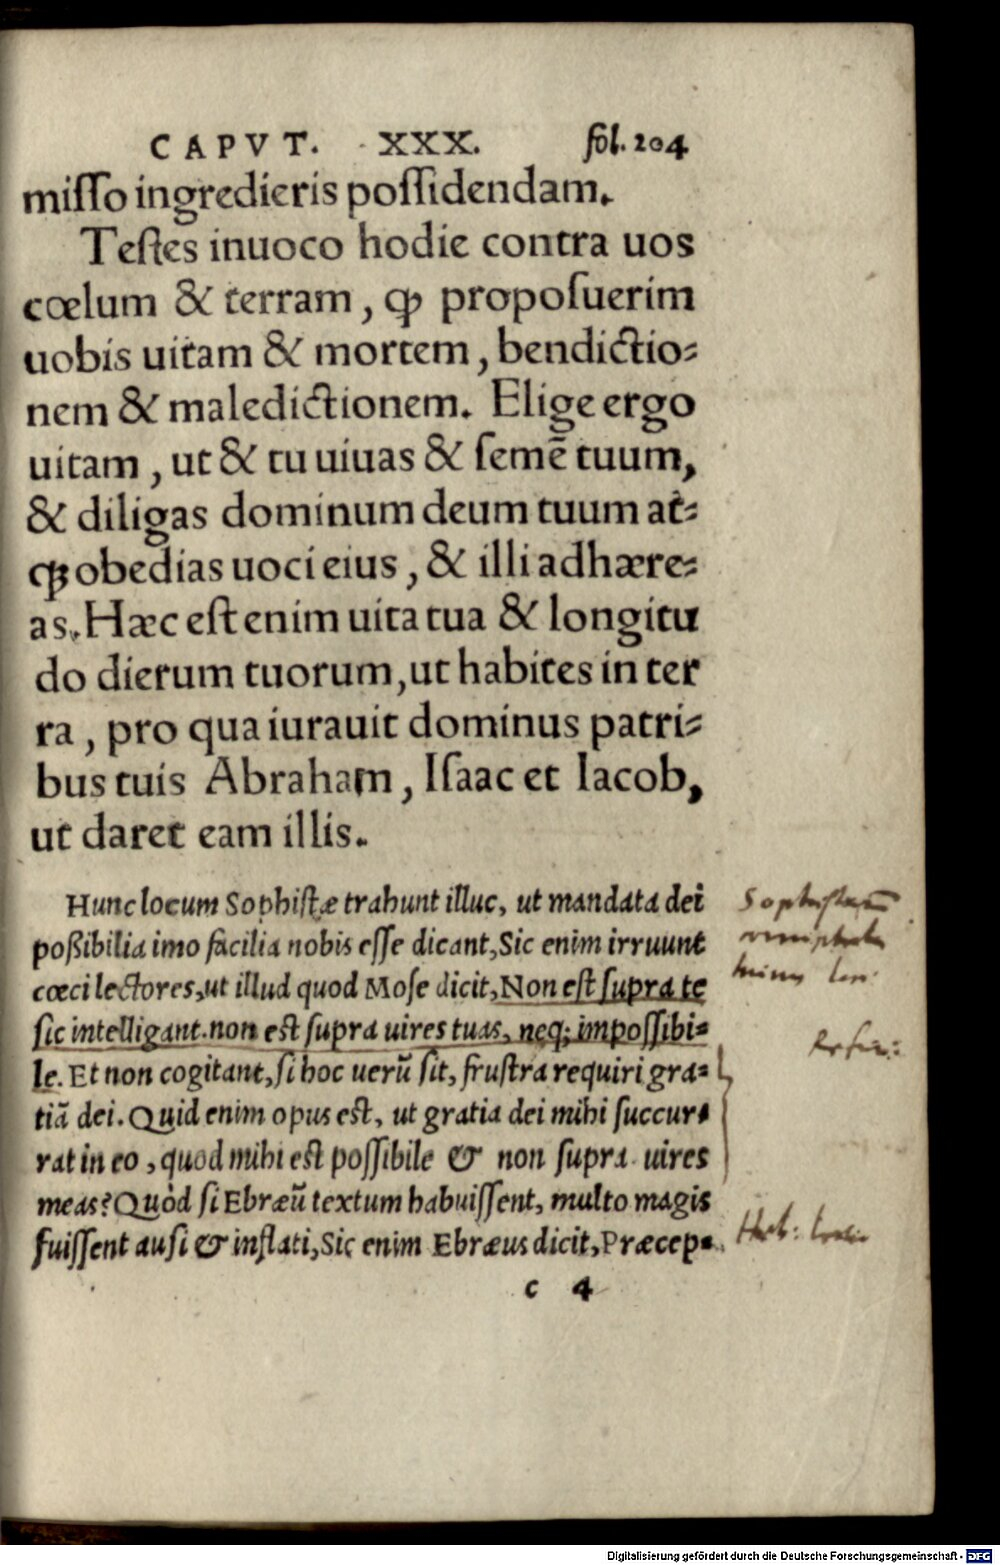 CAPVT. XXX. fol. 204
miſſo ingredieris poſſidendam.
Teſtes inuoco hodie contra uos
cœlum & terram, ꝙ propoſuerim
uobis uitam & mortem, bendictio⸗
nem & maledictionem. Elige ergo
uitam, ut & tu uiuas & ſemē tuum,
& diligas dominum deum tuum at⸗
ꝙ obedias uoci eius, & illi adhære⸗
as. Hæc eſt enim uita tua & longitu
do dierum tuorum, ut habites in ter
ra, pro qua iurauit dominus patri⸗
bus tuis Abraham, Iſaac et Iacob,
ut daret eam illis.
Hunc locum Sophiſtæ trahunt illuc, ut mandata dei
poßibilia imo facilia nobis eſſe dicant, Sic enim irruunt
cœci lectores, ut illud quod Moſe dicit, Non eſt ſupra te
ſic intelligant. non eſt ſupra uires tuas, neq; impoſſibi⸗
le. Et non cogitant, ſi hoc uerū ſit, fruſtra requiri gra⸗
tiā dei. Quid enim opus eſt, ut gratia dei mihi ſuccur⸗
rat in eo, quod mihi eſt poſſibile & non ſupra uires
meas? Quòd ſi Ebræū textum habuiſſent, multo magis
fuiſſent auſi & inflati, Sic enim Ebræus dicit, Præcep⸗
c 4
Digitalisierung gefördert durch die Deutsche Forschungsgemeinschaft - DFG